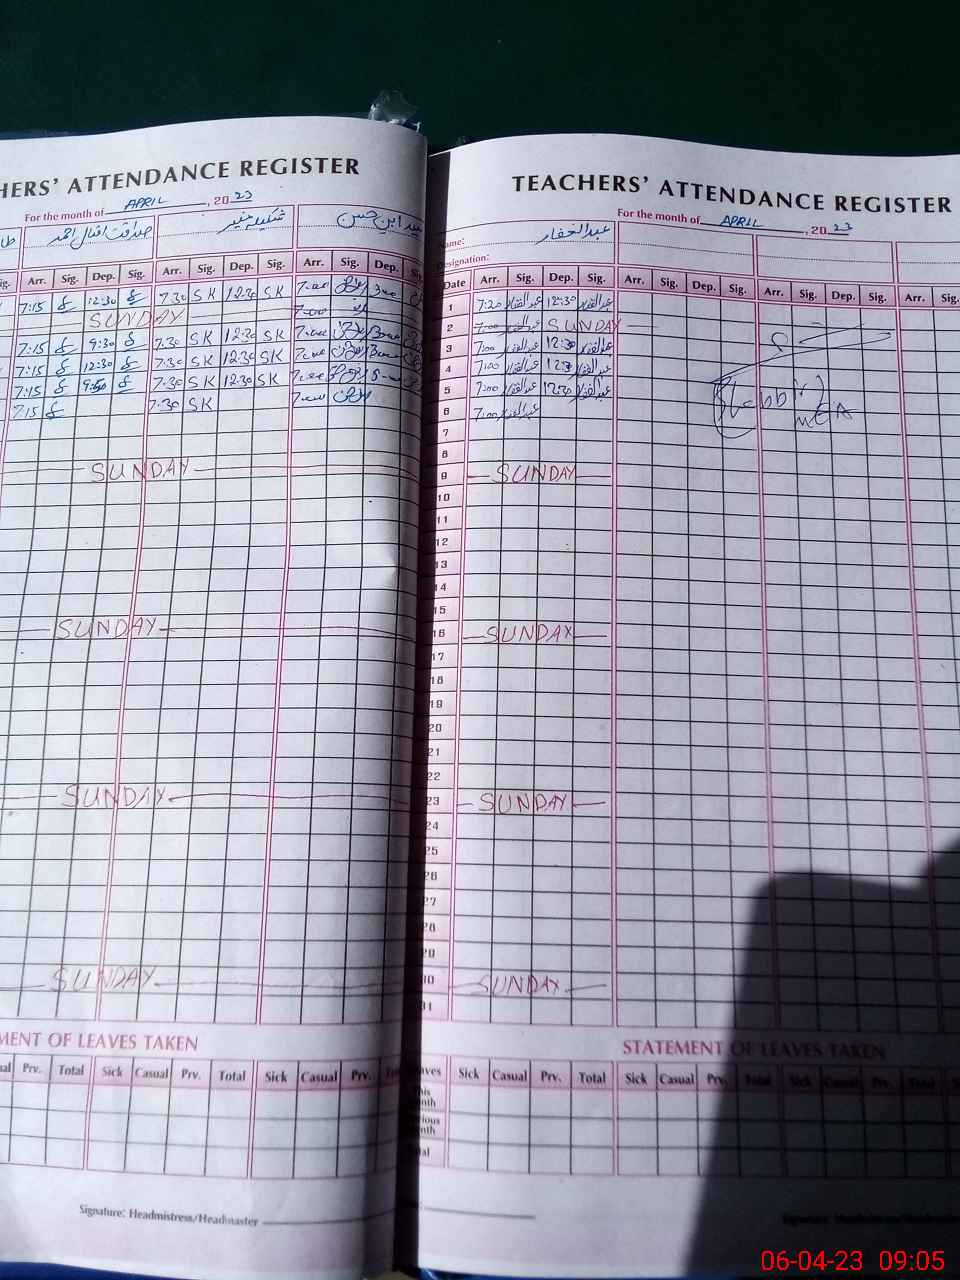 HERS' ATTENDANCE REGISTER
For the month of APRIL, 2023
صداقت اقبال احمد شکیلہ منیر سید ابن حسن
Sig. Arr. Sig. Dep. Sig. Arr. Sig. Dep. Sig. Arr. Sig. Dep.
7:15 12:30 7.30 SK 12.30 SK
SUNDAY
7:15 9:30 7.30 SK 12:30 SK
7:15 12:30 7.30 SK 12.30 SK
7:15 7.30 SK 12.30 SK
7.15 7.30 SK
SUNDAY
SUNDAY
SUNDAY
SUNDAY
MENT OF LEAVES TAKEN
Prv. Total Sick Casual Prv. Total Sick Casual Prv.
Signature: Headmistress/Headmaster
TEACHERS' ATTENDANCE REGISTER
For the month of APRIL, 2023
Name: عبدالغفار
Designation:
Date Arr. Sig. Dep. Sig. Arr. Sig. Dep. Sig. Arr. Sig. Dep. Sig. Arr. Sig.
1 7:20 عبدالغفار 12:30 عبدالغفار
2 7:00 عبدالغفار SUNDAY
3 7:00 عبدالغفار 12:30 عبدالغفار
4 7:00 عبدالغفار 12:30 عبدالغفار
5 7:00 عبدالغفار 12:30 عبدالغفار
6 7:00 عبدالغفار
7
8
9 SUNDAY
10
11
12
13
14
15
16 SUNDAY
17
18
19
20
21
22
23 SUNDAY
24
25
26
27
28
29
30 SUNDAY
31
STATEMENT OF LEAVES TAKEN
Sick Casual Prv. Total Sick Casual Prv. Total Sick Casual Prv. Total Sick
06-04-23 09:05